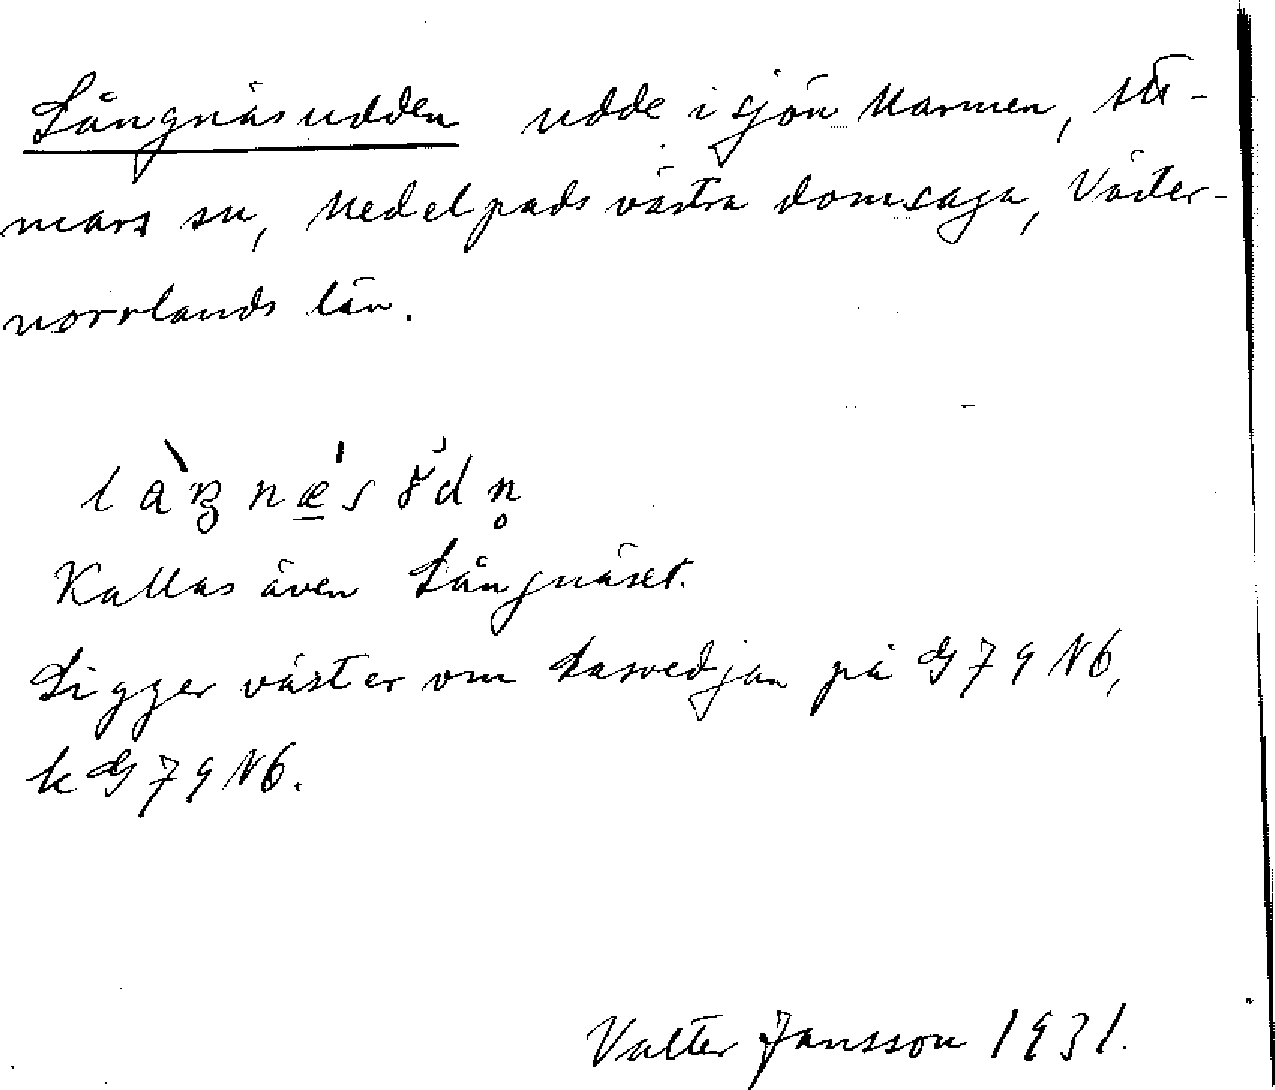 Långnäsudden udde i sjön Marmen, Stö-
mars sn, Medelpads västra domsaga, Väster-
norrlands län.
Kallas även Långnäset.
Ligger väster om Lasvedjan på G79N6,
k G79N6.
Valter Jansson 1931.